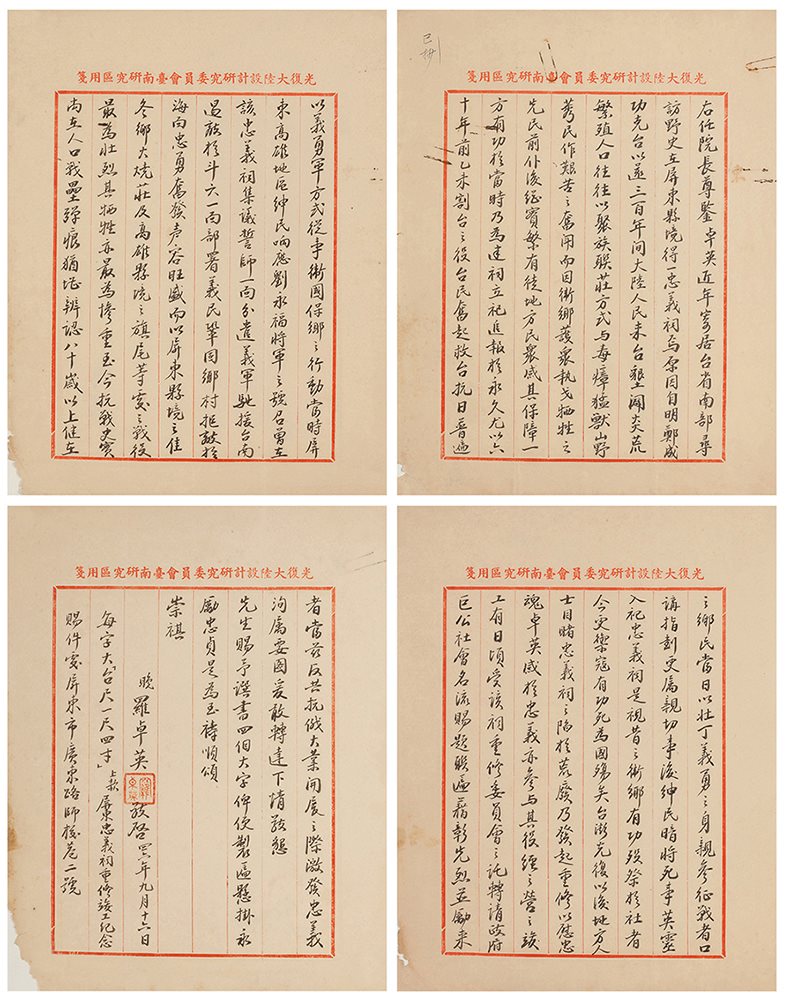 光復大陸設計研究委員會臺南研究區用箋
右任院長尊鑒卓英近年寄居台省南部尋
訪野史在屏東縣境得一忠義祠焉原因自明鄭成
功克台以還三百年間大陸人民来台墾闢炎荒
繁殖人口往往以聚族聯莊方式与毒瘴猛獸山野
莠民作艱苦之奮鬥而因衛鄉護衆執戈犧牲之
先民前仆後繼實繁有徒地方民衆感其保障一
方有功於當時乃為建祠立祀追報於永久尤以六
十年前乙未割台之役台民奮起救台抗日普遍
光復大陸設計研究委員會臺南研究區用箋
以義勇軍方式從事衛國保鄉之行動當時屏
東高雄地區紳民响應劉永福將軍之號召曾在
該忠義祠集議誓師一面分遣義軍馳援台南
遏敵於斗六一面部署義民鞏固鄉村拒敵於
海向忠勇奮發声容旺盛而以屏東縣境之佳
冬鄉大燒莊及高雄縣境之旗尾等處之戰役
最為壯烈其犧牲亦最為慘重至今抗戰史實
尚在人口戰壘彈痕猶堪辨認八十歲以上健在
光復大陸設計研究委員會臺南研究區用箋
之鄉民當日以壯丁義勇之身親參征戰者口
講指劃更属親切事後紳民暗將死事英靈
入祀忠義祠是視昔之衛鄉有功歿祭於社者
今更禦寇有功死為國殤矣台灣光復以後地方人
士目睹忠義祠之陷於荒廢乃發起重修以慰忠
魂卓英感於忠義亦參与其役經之營之竣
工有日頃受該祠重修委員會之託轉請政府
巨公社會名流賜題聯匾藉彰先烈並勵来
光復大陸設計研究委員會臺南研究區用箋
者當茲反共抗俄大業開展之際激發忠義
洵属要圖爰敢轉達下情敬懇
先生賜予譔書四個大字俾便製匾懸掛永
勵忠貞是為至禱順頌
崇祺
晚羅卓英敬啓四六年九月十六日
每字大「台尺一尺四寸」上款屏東忠義祠重修竣工紀念
賜件寄屏東市廣東路師校巷二號